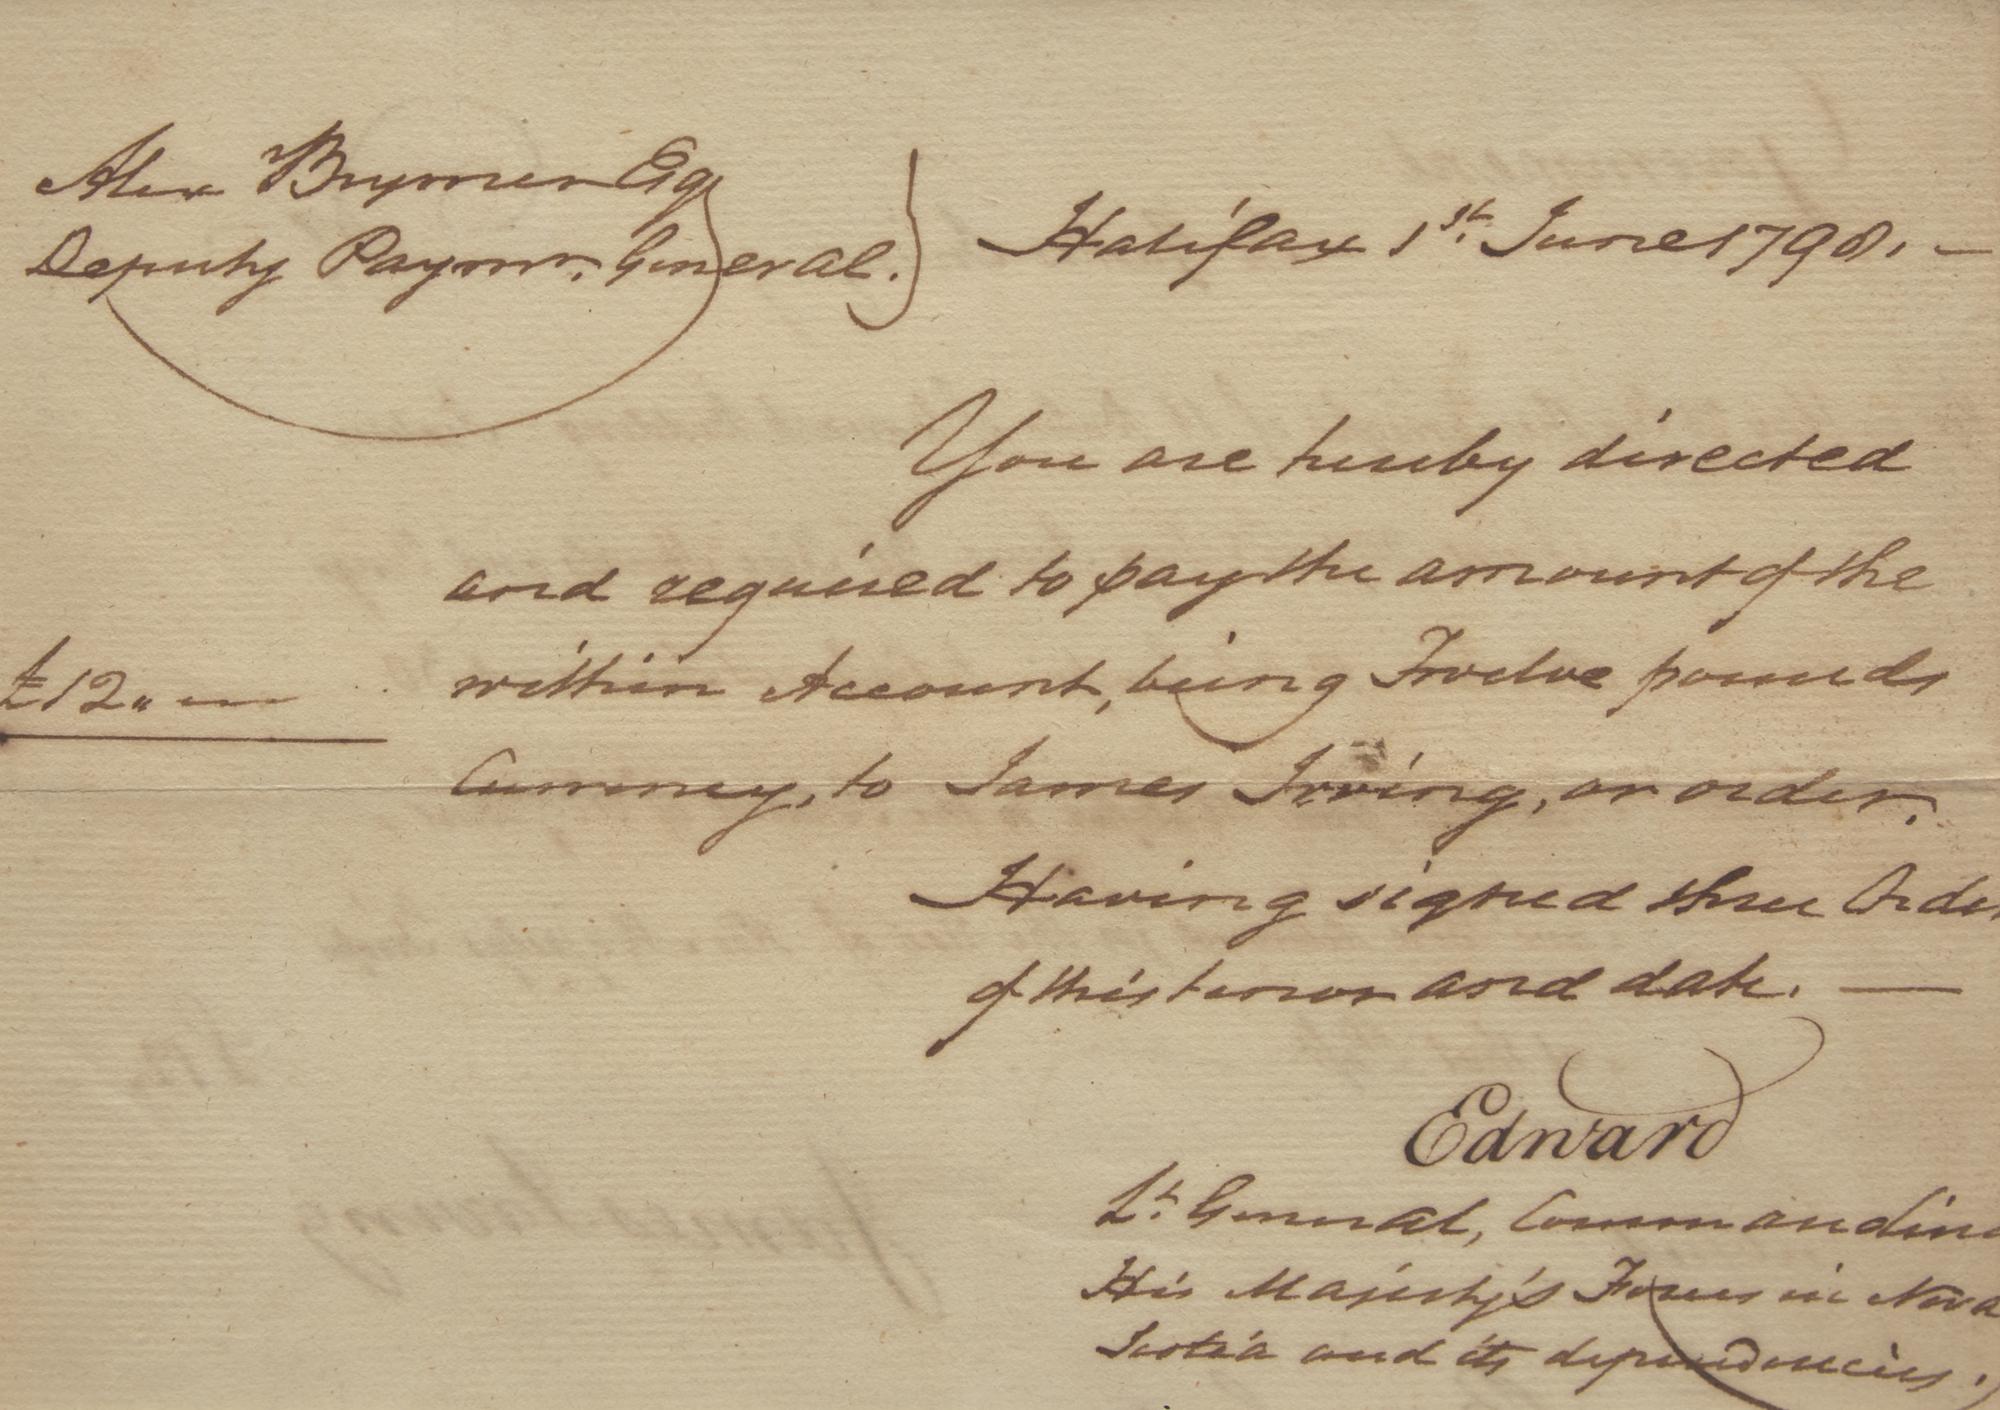 Alex Brymer Esq
Deputy Paymr. General.
Halifax 1st. June 1798. —
You are hereby directed
and required to pay the amount of the
within Account, being Twelve pounds
£12 " — 
Currency, to James Irving, or order.
Having signed three Order
of this tenor and date. —
Edward
Lt. General, Commanding
His Majesty's Forces in Nova
Scotia and its dependencies.